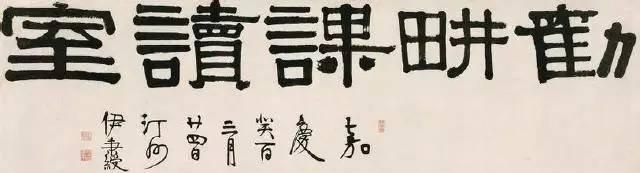 勸畊課讀室
嘉
慶
癸酉
月
廿四日
汀州
伊秉綬